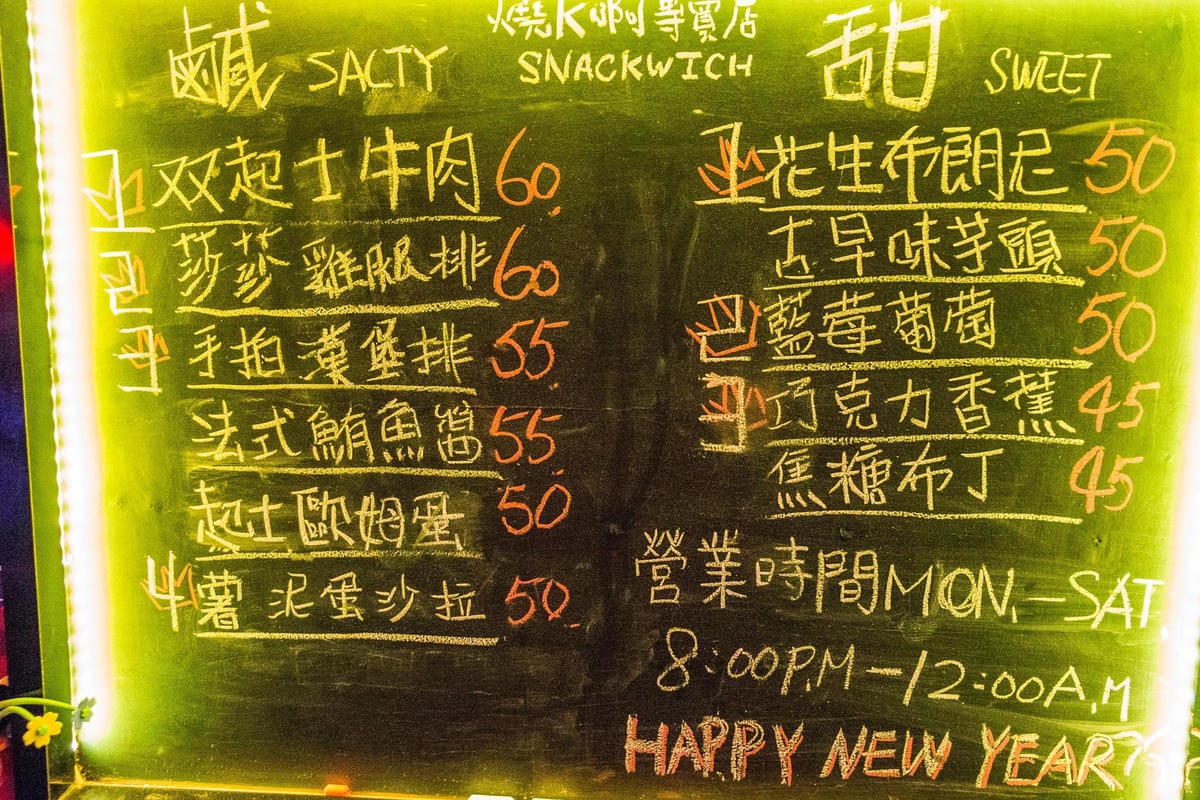 燒K啊等賣店
SNACKWICH
鹹 SALTY
双起士牛肉 60
莎莎雞腿排 60
手拍漢堡排 55
法式鮪魚醬 55
起士歐姆蛋 50
薯泥蛋沙拉 50
甜 SWEET
花生布朗尼 50
古早味芋頭 50
藍莓葡萄 50
巧克力香蕉 45
焦糖布丁 45
營業時間MON.—SAT.
8:00P.M—12:00A.M
HAPPY NEW YEAR